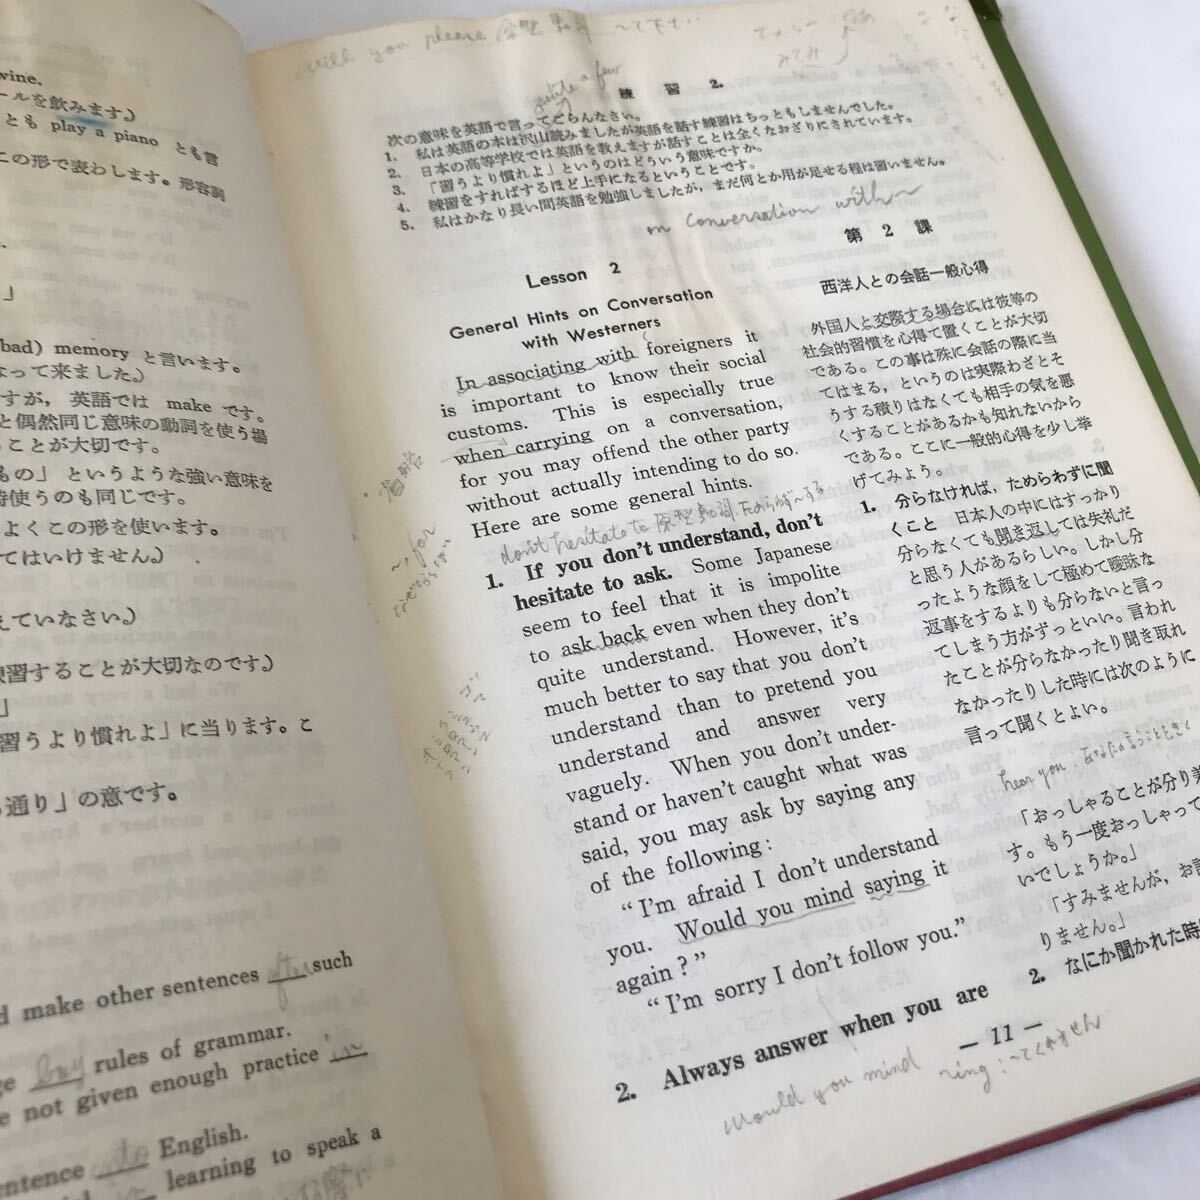 wine.
ールを飲みます。)
とも play a piano とも言
この形で表わします。形容詞
」
bad) memory と言います。
なって来ました。)
すが, 英語では make です。
と偶然同じ意味の動詞を使う場
ることが大切です。
もの」というような強い意味を
時使うのも同じです。
よくこの形を使います。
てはいけません。)
えていなさい。)
練習することが大切なのです。)
」
習うより慣れよ」に当ります。こ
通り」の意です。
d make other sentences after such
ge buy rules of grammar.
e not given enough practice in
entence into English.
learning to speak a
will you please 原型動詞 〜て下さい
quite a few
練 習 2.
次の意味を英語で言ってごらんなさい。
1. 私は英語の本は沢山読みましたが英語を話す練習はちっともしませんでした。
2. 日本の高等学校では英語を教えますが話すことは全くなおざりにされています。
3. 「習うより慣れよ」というのはどういう意味ですか。
4. 練習をすればするほど上手になるということです。
5. 私はかなり長い間英語を勉強しましたが, まだ何とか用が足せる程は習いません。
on conversation with〜
Lesson 2
General Hints on Conversation
with Westerners
In associating with foreigners it
is important to know their social
customs. This is especially true
when carrying on a conversation,
for you may offend the other party
without actually intending to do so.
Here are some general hints.
don't hesitate to 原型動詞.ためらわず〜する
1. If you don't understand, don't
hesitate to ask. Some Japanese
seem to feel that it is impolite
to ask back even when they don't
quite understand. However, it's
much better to say that you don't
understand than to pretend you
understand and answer very
vaguely. When you don't under-
stand or haven't caught what was
said, you may ask by saying any
of the following:
"I'm afraid I don't understand
you. Would you mind saying it
again?"
"I'm sorry I don't follow you."
2. Always answer when you are
〜, for
第 2 課
西洋人との会話一般心得
外国人と交際する場合には彼等の
社会的習慣を心得て置くことが大切
である。この事は殊に会話の際に当
てはまる, というのは実際わざとそ
うする積りはなくても相手の気を悪
くすることがあるかも知れないから
である。ここに一般的心得を少し挙
げてみよう。
1. 分らなければ, ためらわずに聞
くこと 日本人の中にはすっかり
分らなくても聞き返しては失礼だ
と思う人があるらしい。しかし分
ったような顔をして極めて曖昧な
返事をするよりも分らないと言っ
てしまう方がずっといい。言われ
たことが分らなかったり聞き取れ
なかったりした時には次のように
言って聞くとよい。
hear you. あなたの言うことをきく
「おっしゃることが分り美
す。もう一度おっしゃって
いでしょうか。」
「すみませんが, お話
りません。」
2. なにか聞かれた時
— 11 —
would you mind 〜ing:〜てくれません